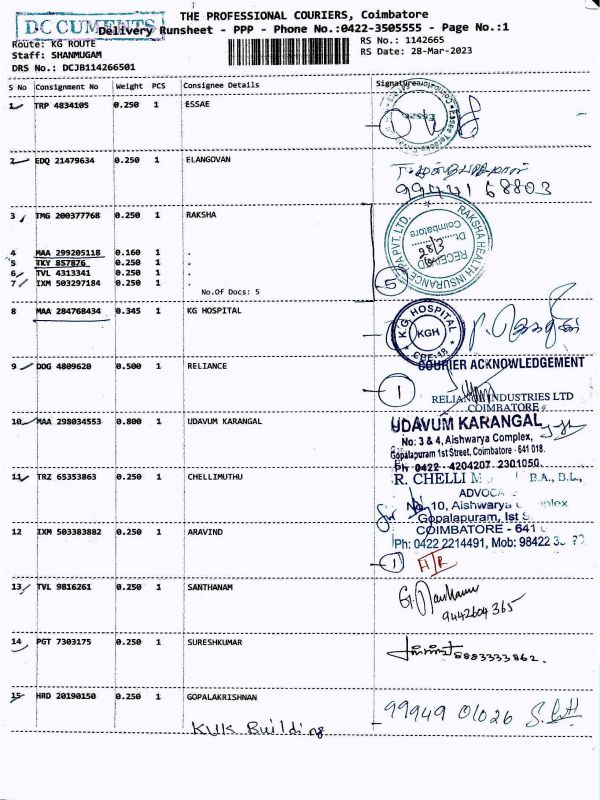 DOCUMENTS
THE PROFESSIONAL COURIERS, Coimbatore
Delivery Runsheet - PPP - Phone No.:0422-3505555 - Page No.:1
Route: KG ROUTE
RS No.: 1142665
Staff: SHANMUGAM
RS Date: 28-Mar-2023
DRS No.: DCJB114266501
S No Consignment No Weight PCS Consignee Details Signature
1 TRP 4834105 0.250 1 ESSAE
2 EDQ 21479634 0.250 1 ELANGOVAN
99441 68803
3 TMG 200377768 0.250 1 RAKSHA
RAKSHA HEALTH INSURANCE TPA PVT. LTD.
Coimbatore
Dt.
28/3
RECEIVED
4 MAA 299205118 0.160 1 .
5 TKY 857876 0.250 1 .
6 TVL 4313341 0.250 1 .
7 IXM 503297184 0.250 1 .
No.Of Docs: 5
5
8 MAA 284768434 0.345 1 KG HOSPITAL
K.G. HOSPITAL
KGH
CBE-18
COURIER ACKNOWLEDGEMENT
9 DDG 4809620 0.500 1 RELIANCE
1
RELIANCE INDUSTRIES LTD
COIMBATORE
10 MAA 298034553 0.800 1 UDAVUM KARANGAL
UDAVUM KARANGAL
No: 3 & 4, Aishwarya Complex,
Gopalapuram 1st Street, Coimbatore - 641 018.
Ph 0422 - 4204207 2301050.
11 TRZ 65353863 0.250 1 CHELLIMUTHU
R. CHELLI B.A., B.L.,
ADVOCA
No. 10, Aishwarya
Gopalapuram, Ist
COIMBATORE - 641
Ph: 0422 2214491, Mob: 98422
12 IXM 503383882 0.250 1 ARAVIND
1
H/R
13 TVL 9816261 0.250 1 SANTHANAM
9442604365
14 PGT 7303175 0.250 1 SURESHKUMAR
8883333862.
15 HRD 20190150 0.250 1 GOPALAKRISHNAN
99949 01026
KUK Building